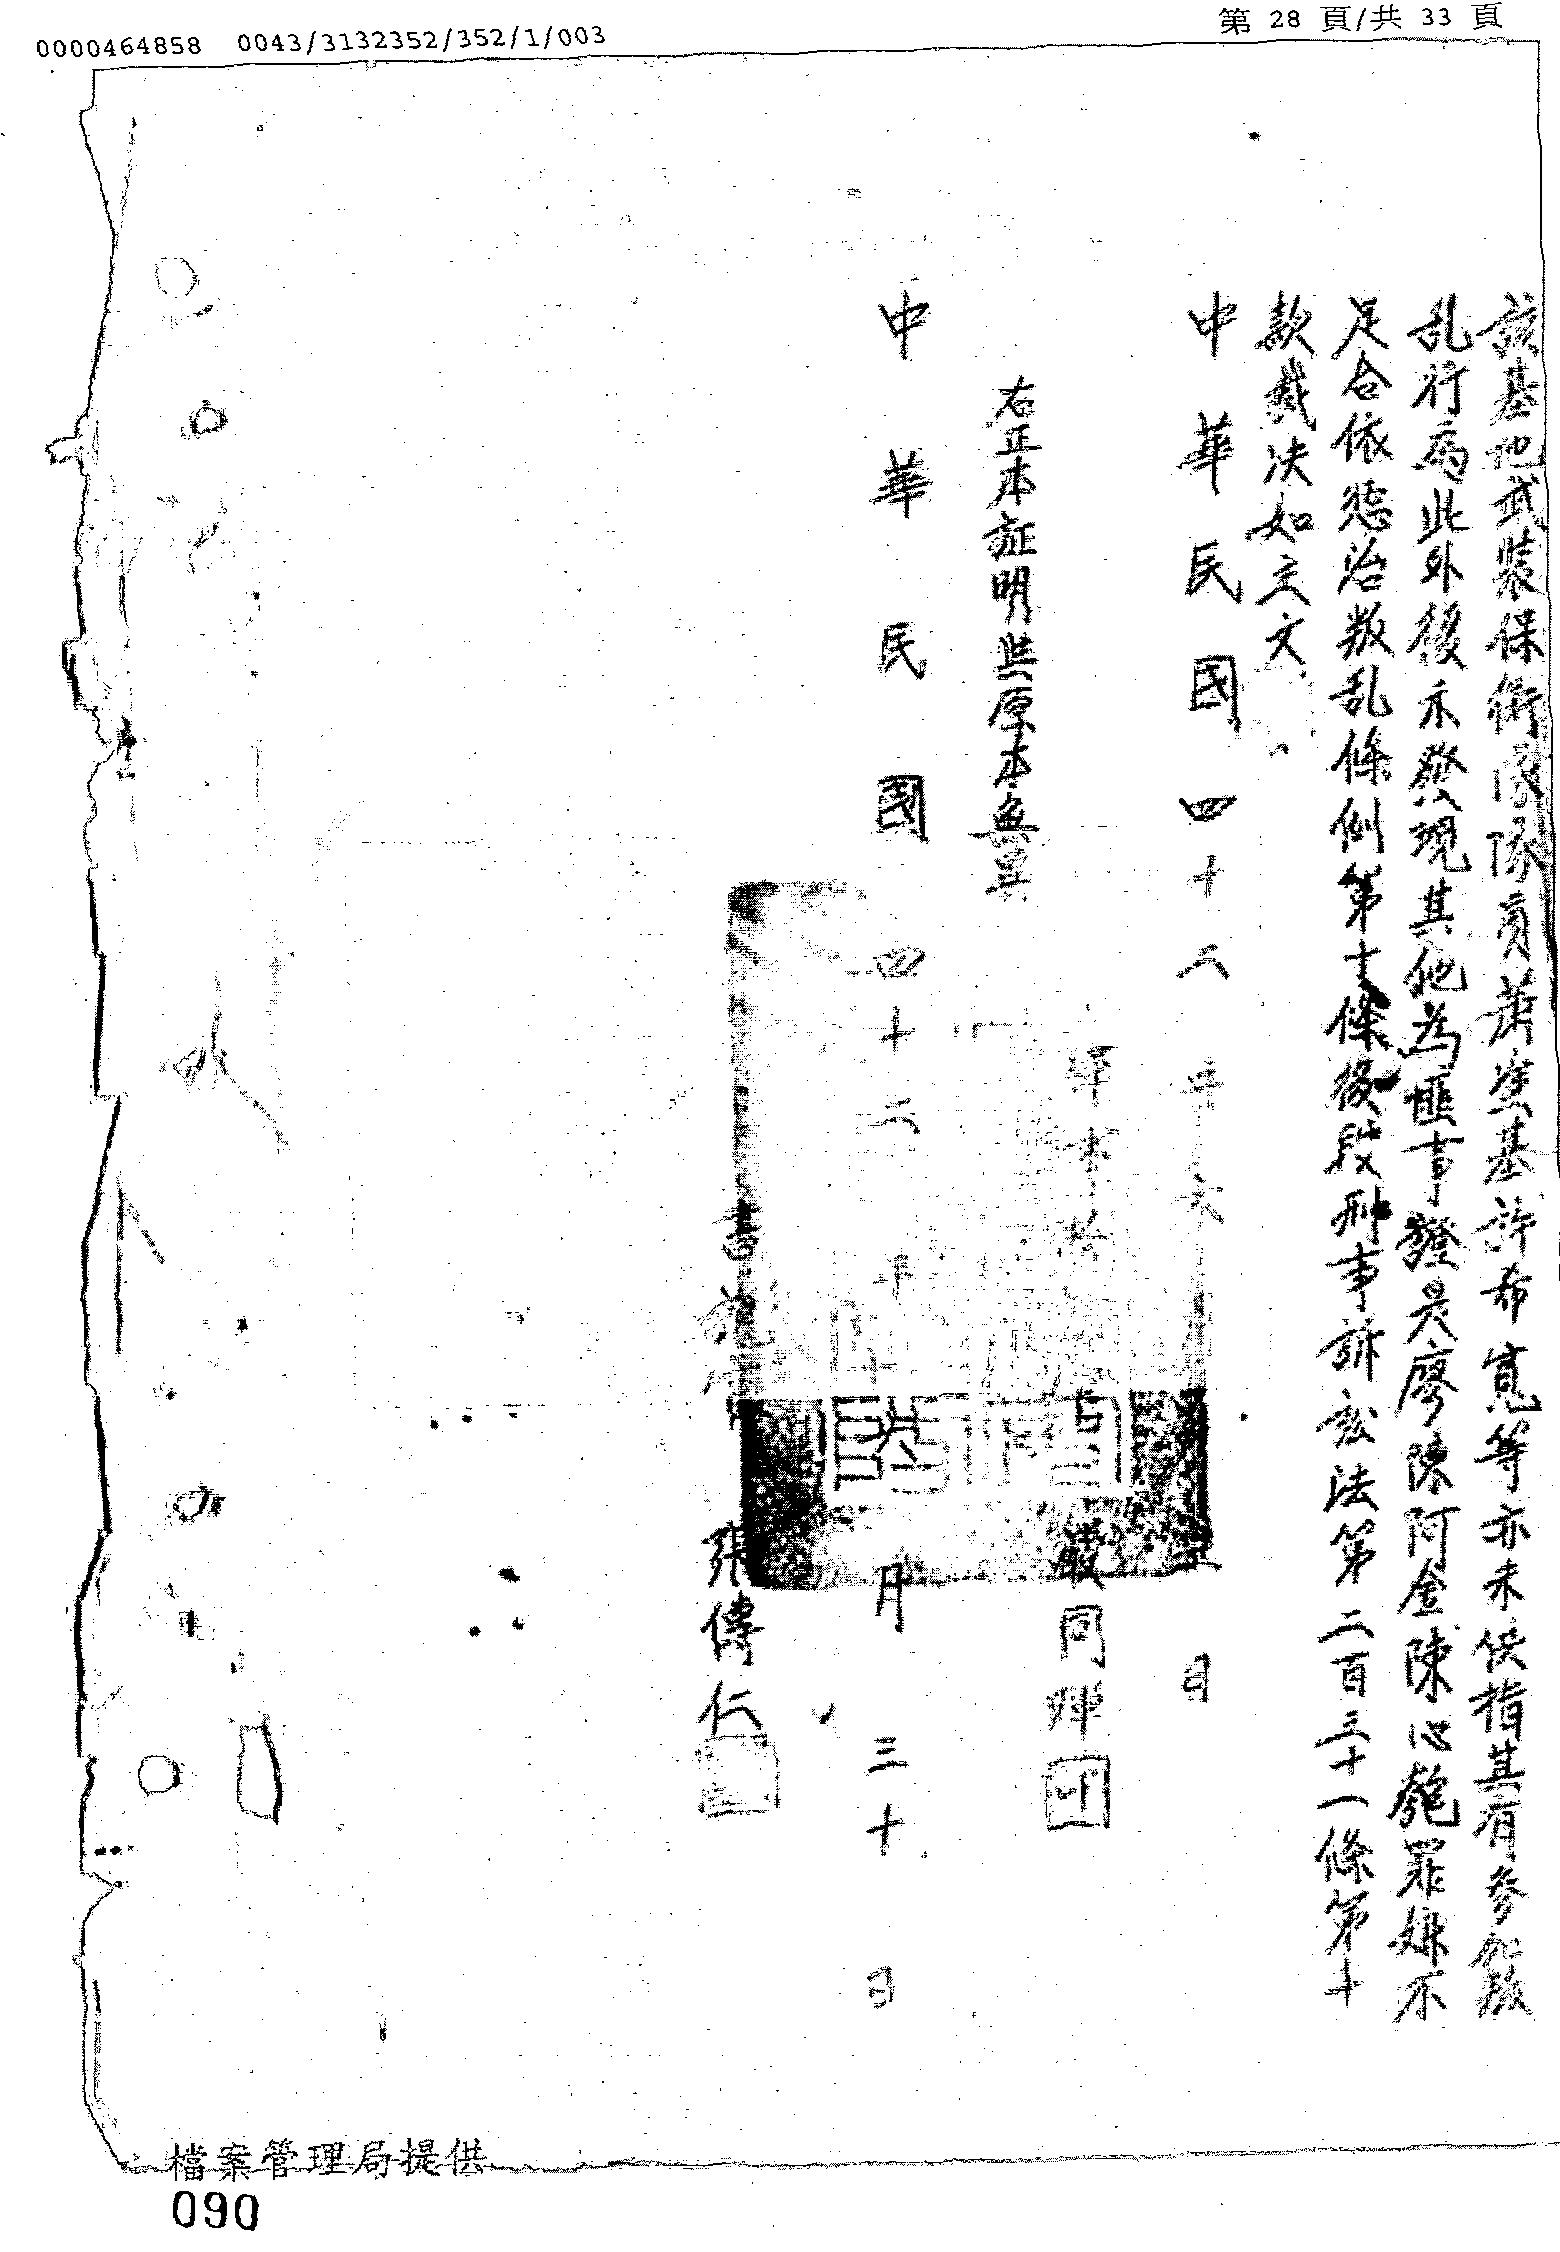 0000464858 0043/3132352/352/1/003
第 28 頁/共 33 頁
該基地武裝保衛隊隊員蕭塗基許希寬等亦未供指其有參加叛
乱行為此外後未發現其他為匪事證是廖陳阿金陳心匏罪嫌不
足合依懲治叛乱條例第十條後段刑事訴訟法第二百三十一條第十
款裁决如主文
中華民國四十二年六月 日
軍事檢 嚴同輝
右正本証明與原本無異
中華民國四十二年 月三十日
書 張傳仁
檔案管理局提供
090